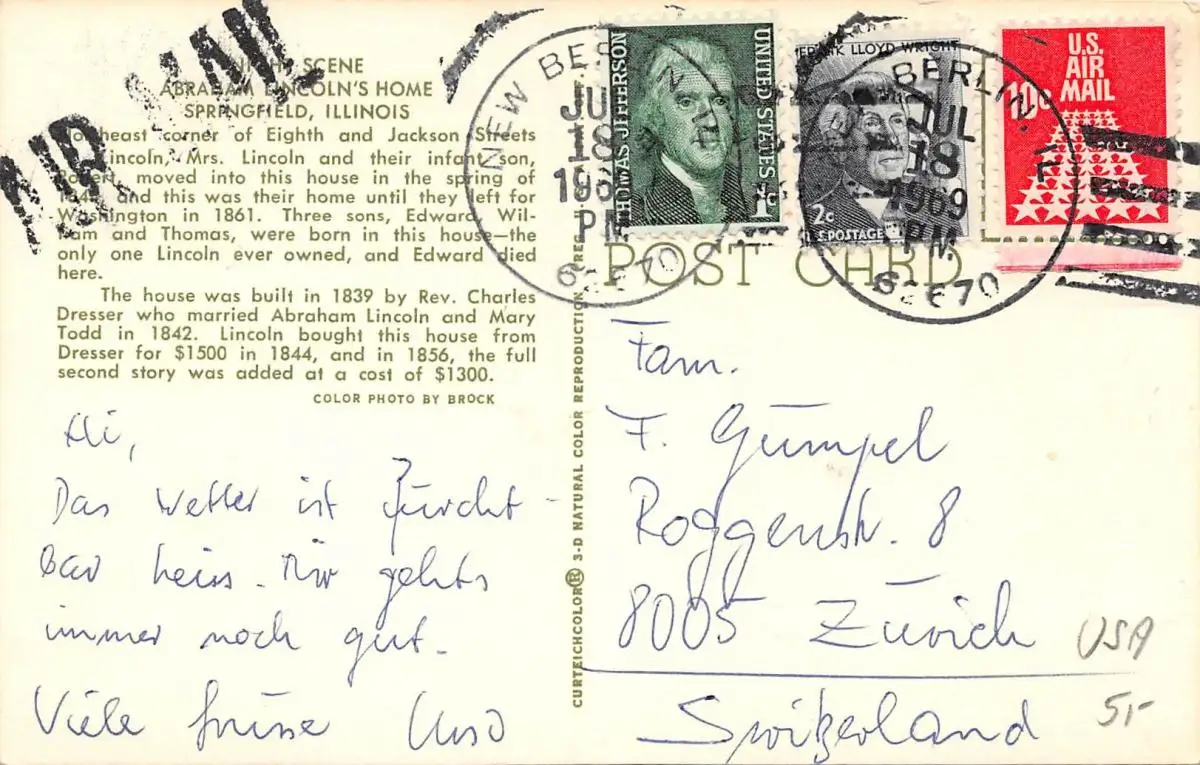 AIR MAIL
NIGHT SCENE
ABRAHAM LINCOLN'S HOME
SPRINGFIELD, ILLINOIS
Northeast corner of Eighth and Jackson Streets
Lincoln, Mrs. Lincoln and their infant son,
Robert, moved into this house in the spring of
and this was their home until they left for
Washington in 1861. Three sons, Edward, Wil-
liam and Thomas, were born in this house—the
only one Lincoln ever owned, and Edward died
here.
The house was built in 1839 by Rev. Charles
Dresser who married Abraham Lincoln and Mary
Todd in 1842. Lincoln bought this house from
Dresser for $1500 in 1844, and in 1856, the full
second story was added at a cost of $1300.
COLOR PHOTO BY BROCK
Hi,
Das Wetter ist furcht-
bar heiss. Mir gehts
immer noch gut.
Viele Grüsse Urso
CURTEICHCOLOR® 3-D NATURAL COLOR REPRODUCTION
NEW BERLIN
JUL
18
1969
PM
62670
THOMAS JEFFERSON
UNITED STATES
1c
FRANK LLOYD WRIGHT
2c
U.S. POSTAGE
BERLIN, IL
JUL
18
1969
PM
62670
U.S.
AIR
MAIL
10c
POST CARD
Fam.
F. Gümpel
Roggenstr. 8
8005 Zürich
Switzerland
USA
5.-